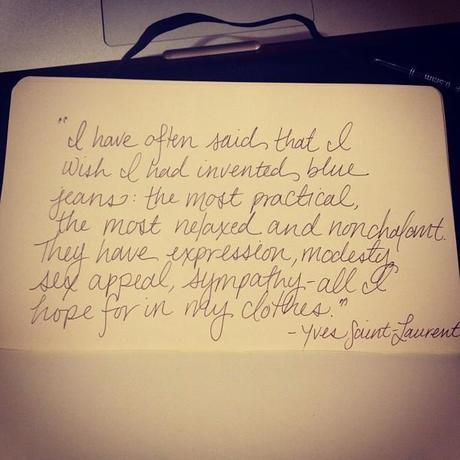 "I have often said, that I
wish I had invented, blue
jeans: the most practical,
the most relaxed and nonchalant.
They have expression, modesty,
sex appeal, sympathy-all I
hope for in my clothes."
-Yves Saint-Laurent